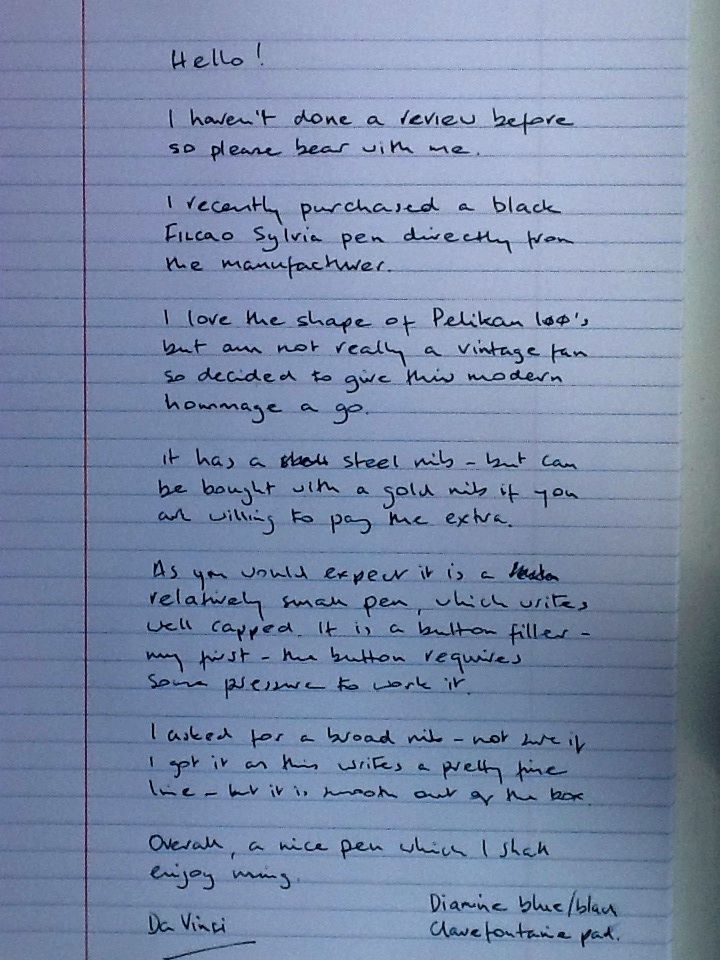 Hello!
I haven't done a review before
so please bear with me.
I recently purchased a black
Filcao Sylvia pen directly from
the manufacturer.
I love the shape of Pelikan 100's
but am not really a vintage fan
so decided to give this modern
hommage a go.
it has a steel nib - but can
be bought with a gold nib if you
are willing to pay the extra.
As you would expect it is a
relatively small pen, which writes
well capped. It is a button filler -
my first - the button requires
some pressure to work it.
I asked for a broad nib - not sure if
I got it as this writes a pretty fine
line - but it is smooth out of the box.
Overall, a nice pen which I shall
enjoy using.
Diamine blue/black
Da Vinci
Clairefontaine pad.